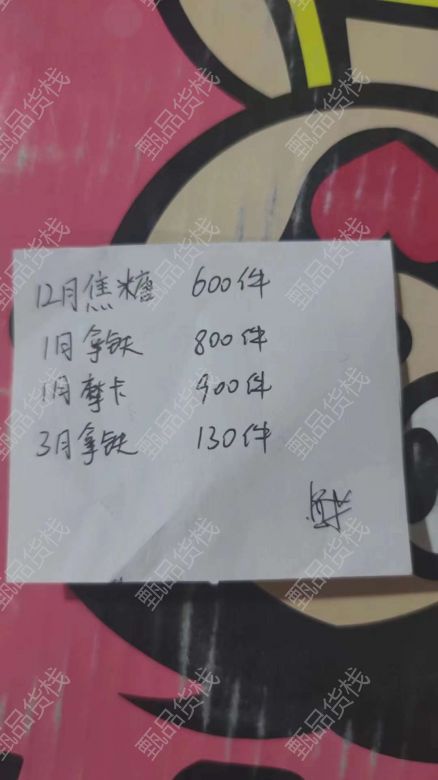 12月焦糖 600件
1月拿铁 800件
1月摩卡 900件
3月拿铁 130件
甄品货栈